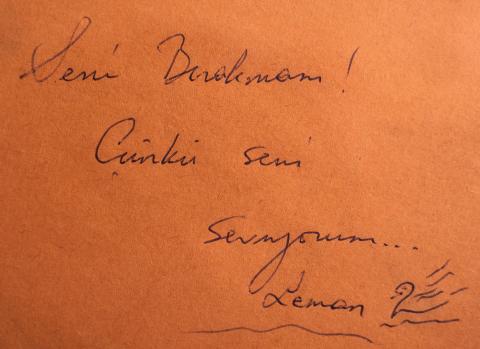 Seni Bırakmam!
Çünkü seni
seviyorum...
Leman